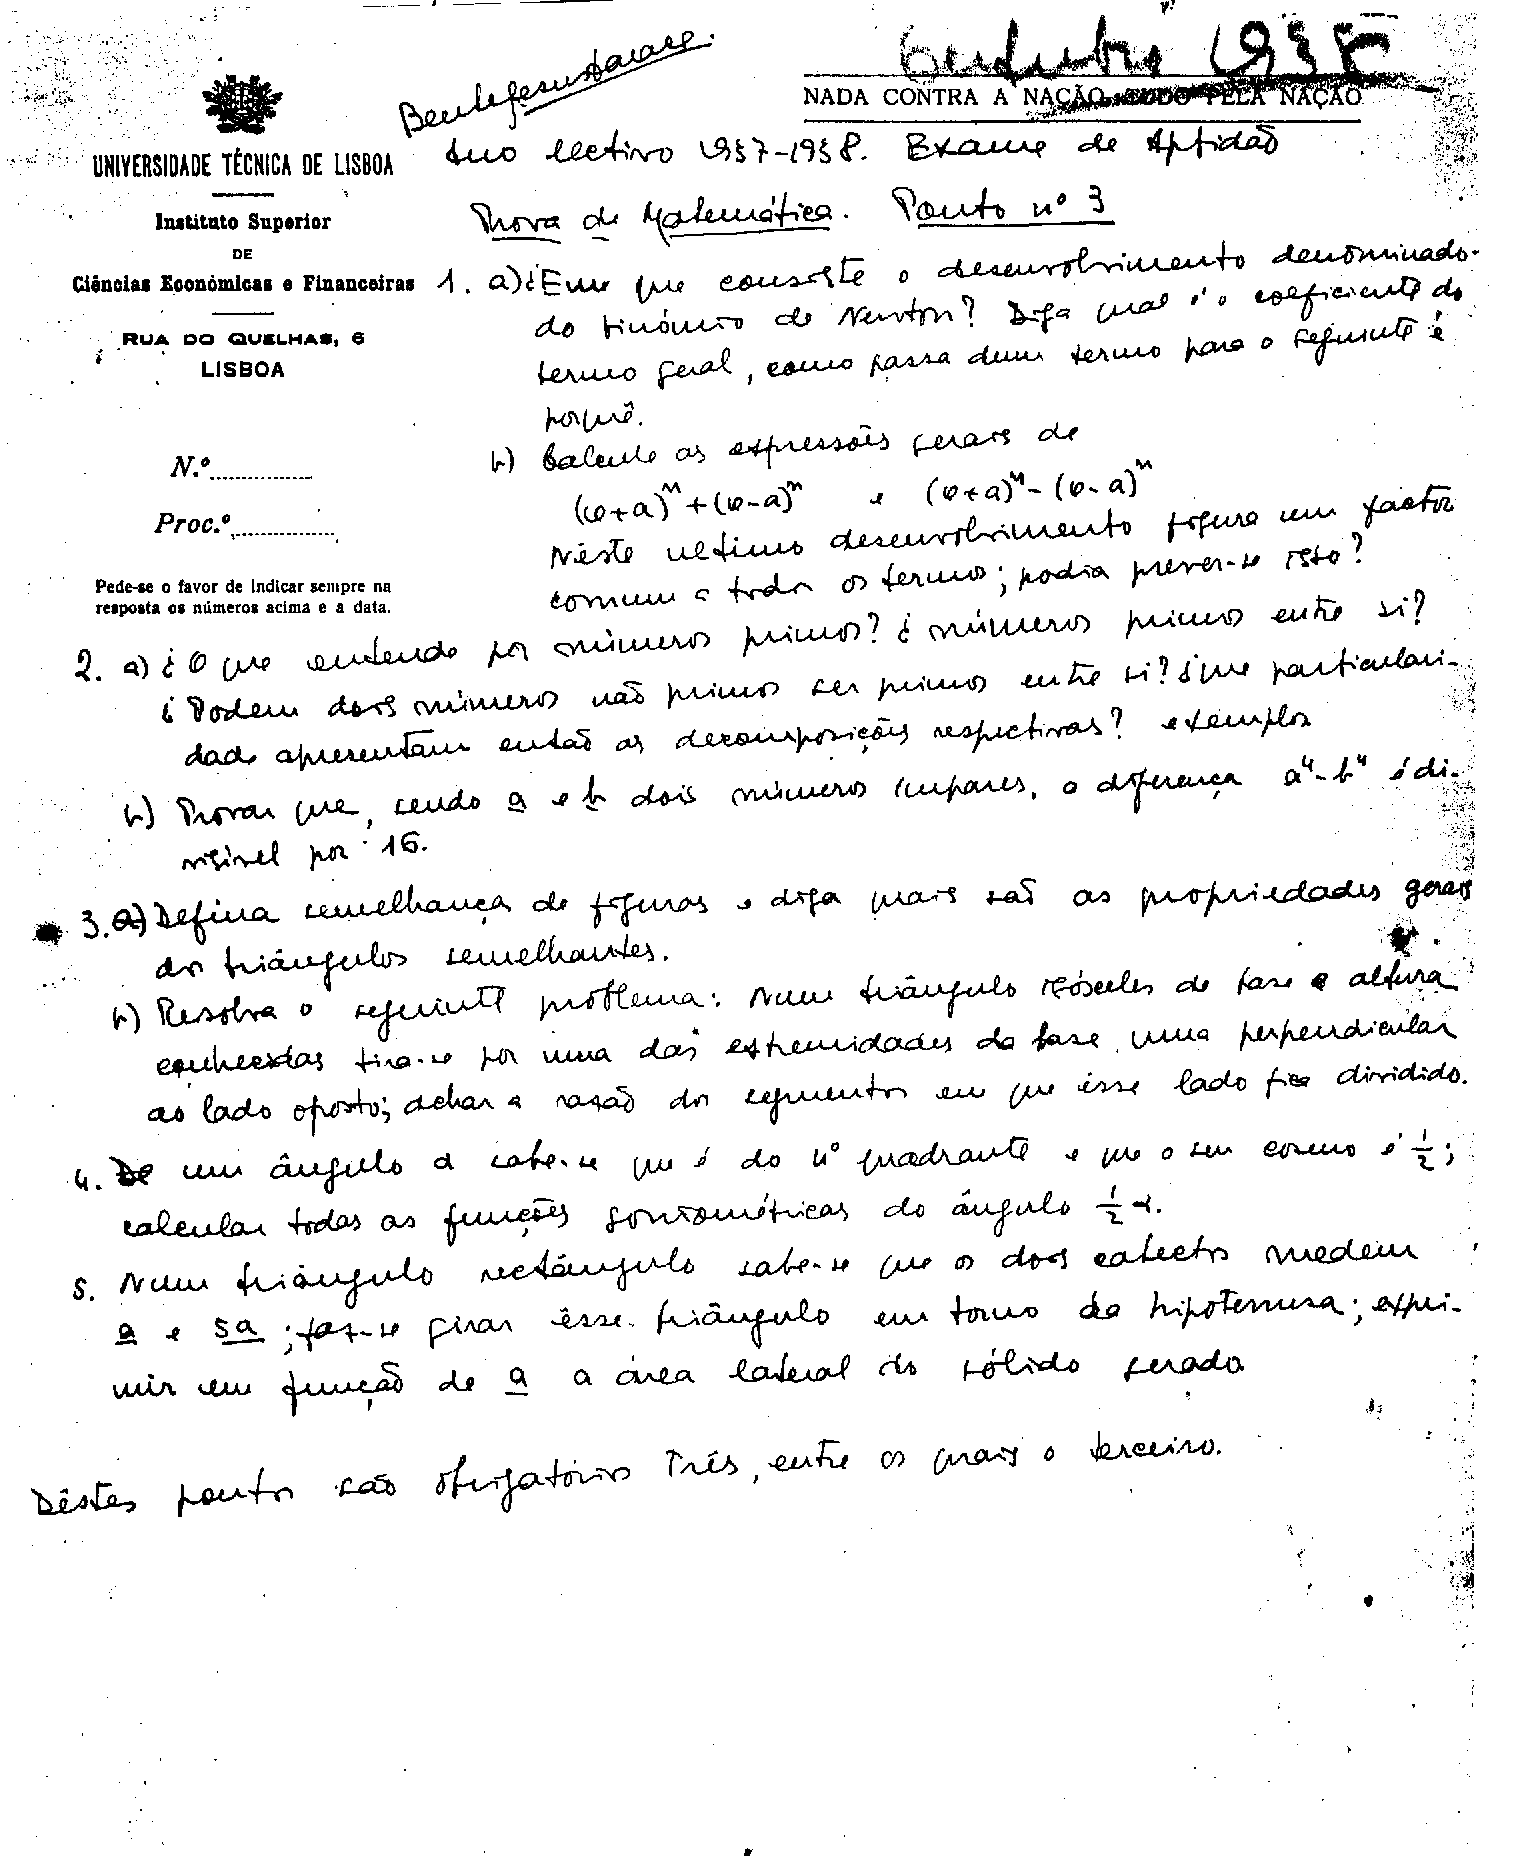 Outubro 1938
NADA CONTRA A NAÇÃO, TUDO PELA NAÇÃO
UNIVERSIDADE TÉCNICA DE LISBOA
Instituto Superior
DE
Ciências Económicas e Financeiras
RUA DO QUELHAS, 6
LISBOA
N.º
Proc.º
Pede-se o favor de indicar sempre na
resposta os números acima e a data.
Ano lectivo 1937-1938. Exame de Aptidão
Prova de Matemática. Ponto nº 3
1. a) ¿Em que consiste o desenvolvimento denominado
do binómio de Newton? Diga qual é o coeficiente do
termo geral, como passa dum termo para o seguinte e
porquê.
b) Calcule as expressões gerais de
(x+a)^m + (x-a)^m e (x+a)^m - (x-a)^m
Nêste ultimo desenvolvimento figura um factor
comum a todos os termos; podia prever-se isso?
2. a) ¿O que entende por números primos? ¿números primos entre si?
¿Podem dois números não primos ser primos entre si? ¿Que particulari-
dade apresentam então as decomposições respectivas? exemplos
b) Provar que, sendo a e b dois números ímpares, a diferença a⁴-b⁴ é di-
visível por 16.
3. a) Defina semelhança de figuras e diga quais são as propriedades gerais
dos triângulos semelhantes.
b) Resolva o seguinte problema: Num triângulo isósceles de base e altura
conhecidas tira-se por uma das extremidades da base uma perpendicular
ao lado oposto; achar a razão dos segmentos em que êsse lado fica dividido.
4. De um ângulo α sabe-se que é do 4º quadrante e que o seu coseno é 1/2;
calcular todas as funções goniométricas do ângulo 1/2 α.
5. Num triângulo rectângulo sabe-se que os dois catectos medem
a e 5a; faz-se girar êsse triângulo em torno da hipotenusa; expri-
mir em função de a a área lateral do sólido gerado
Dêstes pontos são obrigatórios Três, entre os quais o terceiro.